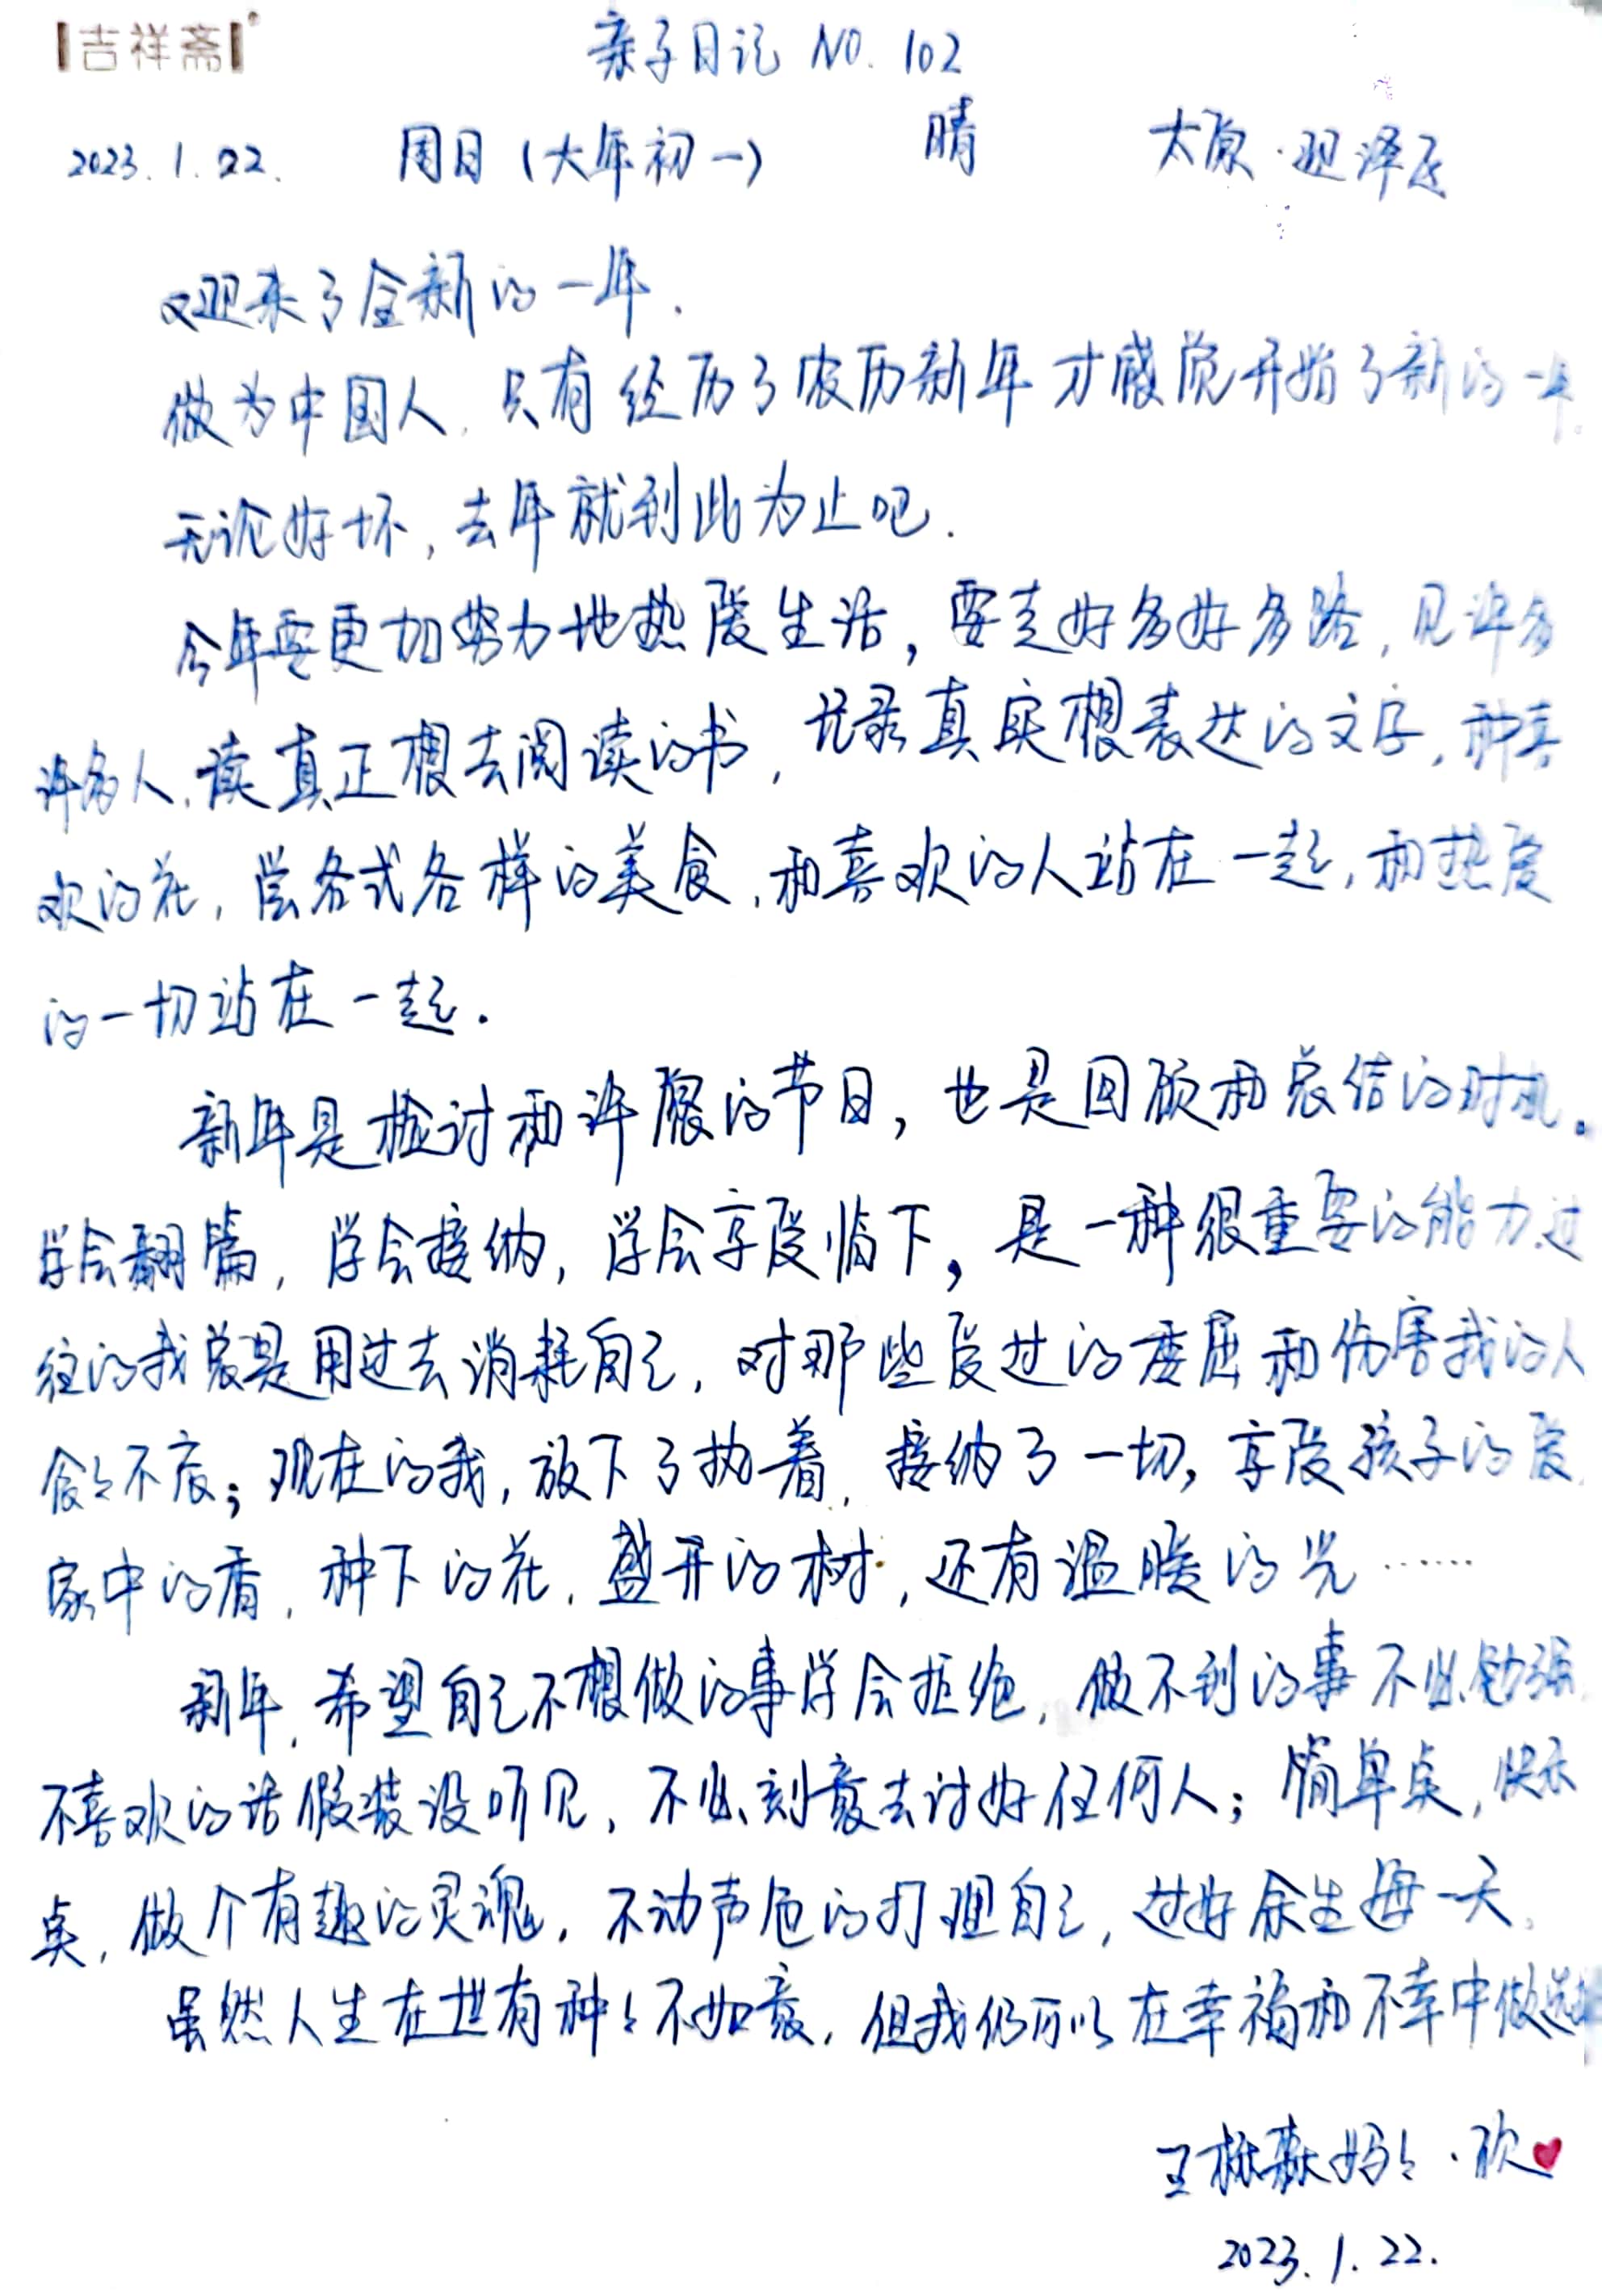 吉祥斋
亲子日记 NO. 102
2023. 1. 22. 周日(大年初一) 晴 太原·迎泽区
又迎来了全新的一年.
做为中国人, 只有经历了农历新年才感觉开始了新的一年。
无论好坏, 去年就到此为止吧.
今年要更加努力地热爱生活, 要走好多好多路, 见许多
许多人, 读真正想去阅读的书, 记录真实想表达的文字, 种喜
欢的花, 尝各式各样的美食, 和喜欢的人站在一起, 和热爱
的一切站在一起.
新年是检讨和许愿的节日, 也是回顾和总结的时机。
学会翻篇, 学会接纳, 学会享受当下, 是一种很重要的能力.过
往的我总是用过去消耗自己, 对那些受过的委屈和伤害我的人
念念不忘; 现在的我, 放下了执着, 接纳了一切, 享受孩子的爱,
家中的香, 种下的花, 盛开的树, 还有温暖的光……
新年, 希望自己不想做的事学会拒绝, 做不到的事不必勉强,
不喜欢的话假装没听见, 不必刻意去讨好任何人; 简单点, 快乐
点, 做个有趣的灵魂, 不动声色的打理自己, 过好余生每一天.
虽然人生在世有种种不如意, 但我仍可以在幸福和不幸中做选择
王林森妈妈·欣
2023. 1. 22.